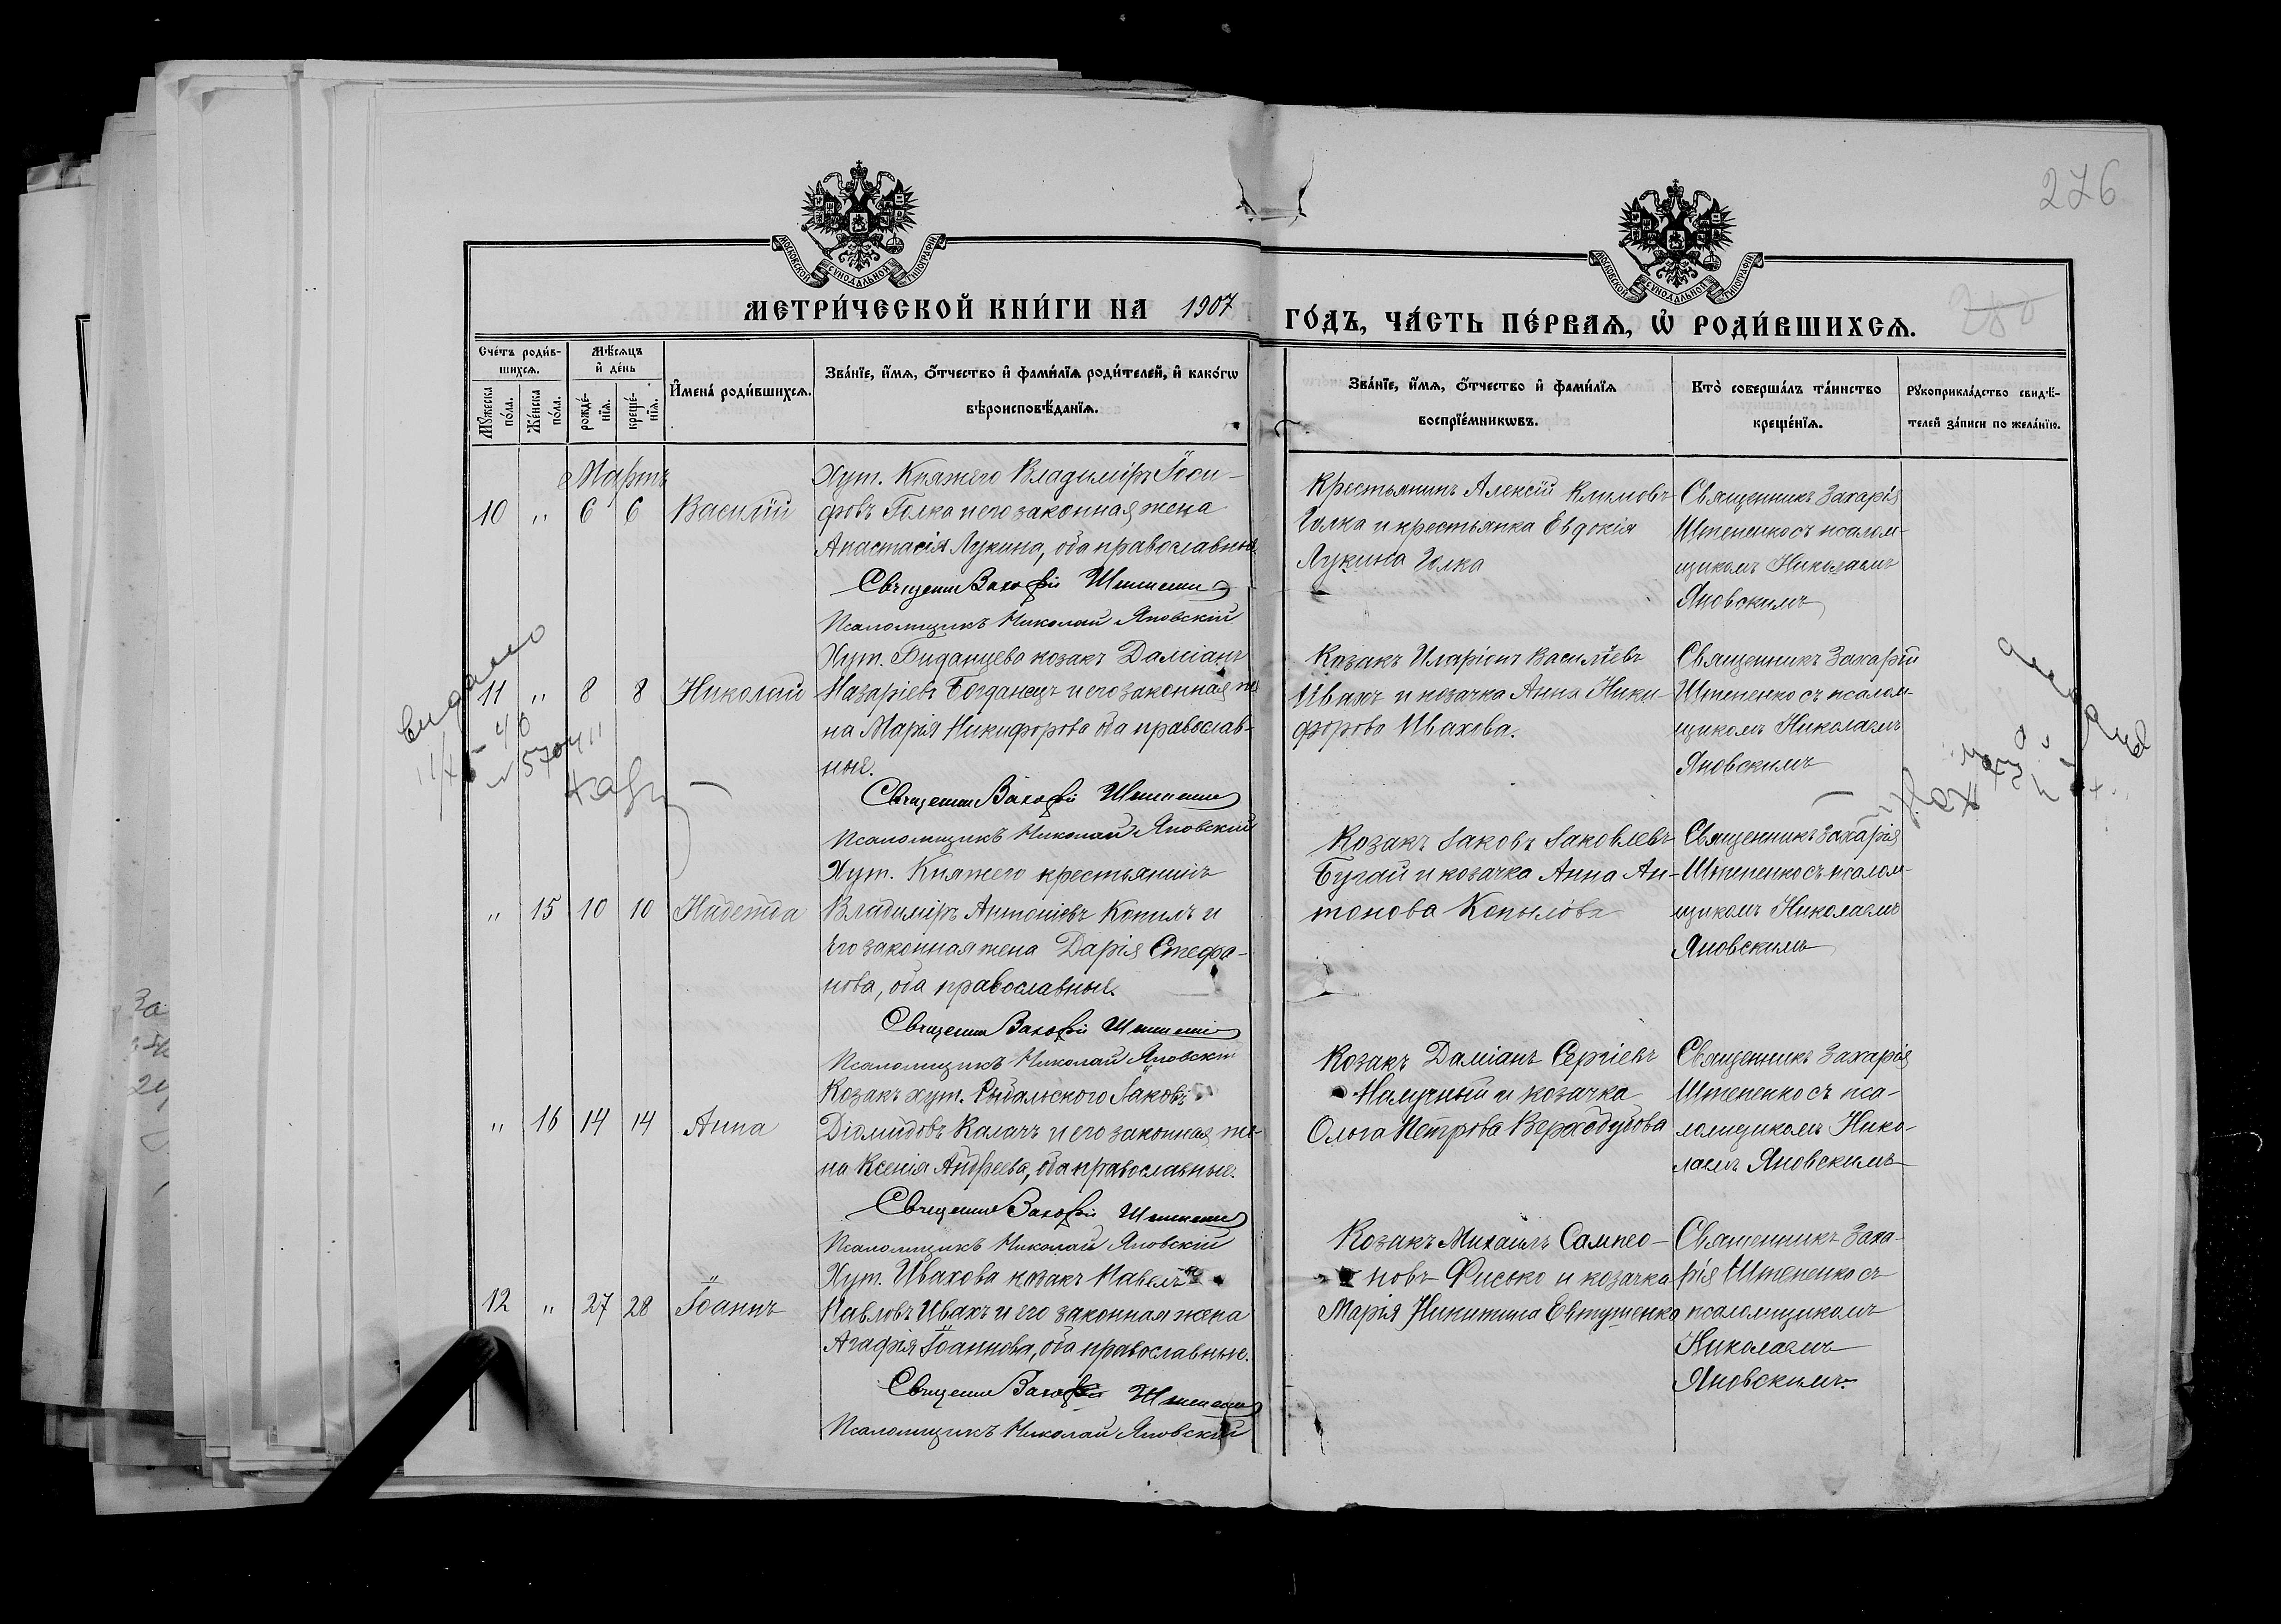 276
МОСКОВСКОЙ СѴНОДАЛЬНОЙ ТИПОГРАФІИ
МОСКОВСКОЙ СѴНОДАЛЬНОЙ ТИПОГРАФІИ
МЕТРИ́ЧЕСКОЙ КНИ́ГИ НА 1907
ГО́ДЪ, ЧА́СТЬ ПЕ́РВАѦ, Ѡ҆ РОДИ́ВШИХСѦ.
280
Сче́тъ роди́в-
шихсѧ.
Мꙋ́жеска по́ла.
Же́нска по́ла.
Мѣ́сѧцъ
и҆ де́нь
рожде́-
нїѧ.
креще́-
нїѧ.
И҆мена̀ роди́вшихсѧ.
Зва́нїе, и҆́мѧ, ѻ҆́тчество и҆ фами́лїѧ роди́телей, и҆ како́гѡ
вѣроисповѣ́данїѧ.
Зва́нїе, и҆́мѧ, ѻ҆́тчество и҆ фами́лїѧ
воспрїе́мникѡвъ.
Кто̀ соверша́лъ та́инство
креще́нїѧ.
Рꙋкоприкла́дство свидѣ́-
телей за́писи по жела́нїю.
Мартъ
10 " 6 6 Василій
Хут. Княжего Владиміръ Іоси-
фовъ Голка и его законная жена
Анастасія Лукина, оба православные
Священ Захарій Штепенко
Псаломщикъ Николай Яновскій
Крестьянинъ Алексій Климовъ
Голка и крестьянка Евдокія
Лукина Голка
Священникъ Захарія
Штепенко съ псалом-
щикомъ Николаемъ
Яновскимъ
11 " 8 8 Николай
Хут. Биданцева козакъ Даміанъ
Назаріевъ Богданецъ и его законная же
на Марія Никифорова оба православ-
ные.
Священ Захарій Штепенко
Псаломщикъ Николай Яновскій
Козакъ Иларіонъ Василіевъ
Ивахъ и козачка Анна Ники-
форова Ивахова.
Священникъ Захарій
Штепенко съ псалом-
щикомъ Николаемъ
Яновскимъ
" 15 10 10 Надежда
Хут. Княжего крестьянинъ
Владиміръ Антоніевъ Копилъ и
его законная жена Дарія Стефа-
нова, оба православные.
Священ Захарій Штепенко
Псаломщикъ Николай Яновскій
Козакъ Іаковъ Іаковлевъ
Бугай и козачка Анна Ан-
тонова Копылова
Священникъ Захарія
Штепенко съ псалом-
щикомъ Николаемъ
Яновскимъ
" 16 14 14 Анна
Козакъ хут. Рыбальского Іаковъ
Діомидовъ Калачъ и его законная же-
на Ксенія Андреева, оба православные.
Священ Захарій Штепенко
Псаломщикъ Николай Яновскій
Козакъ Даміанъ Сергіевъ
Намучный и козачка
Ольга Петрова Верходубова
Священникъ Захарія
Штепенко съ пса-
ломщикомъ Нико-
лаемъ Яновскимъ
12 " 27 28 Іоаннъ
Хут. Ивахова козакъ Павелъ
Павловъ Ивахъ и его законная жена
Агафія Іоаннова, оба православные.
Священ Захарій Штепенко
Псаломщикъ Николай Яновскій
Козакъ Михаилъ Сампсо-
новъ Фисько и козачка
Марія Никитина Евтушенко
Священникъ Заха-
рія Штепенко съ
псаломщикомъ
Николаемъ
Яновскимъ